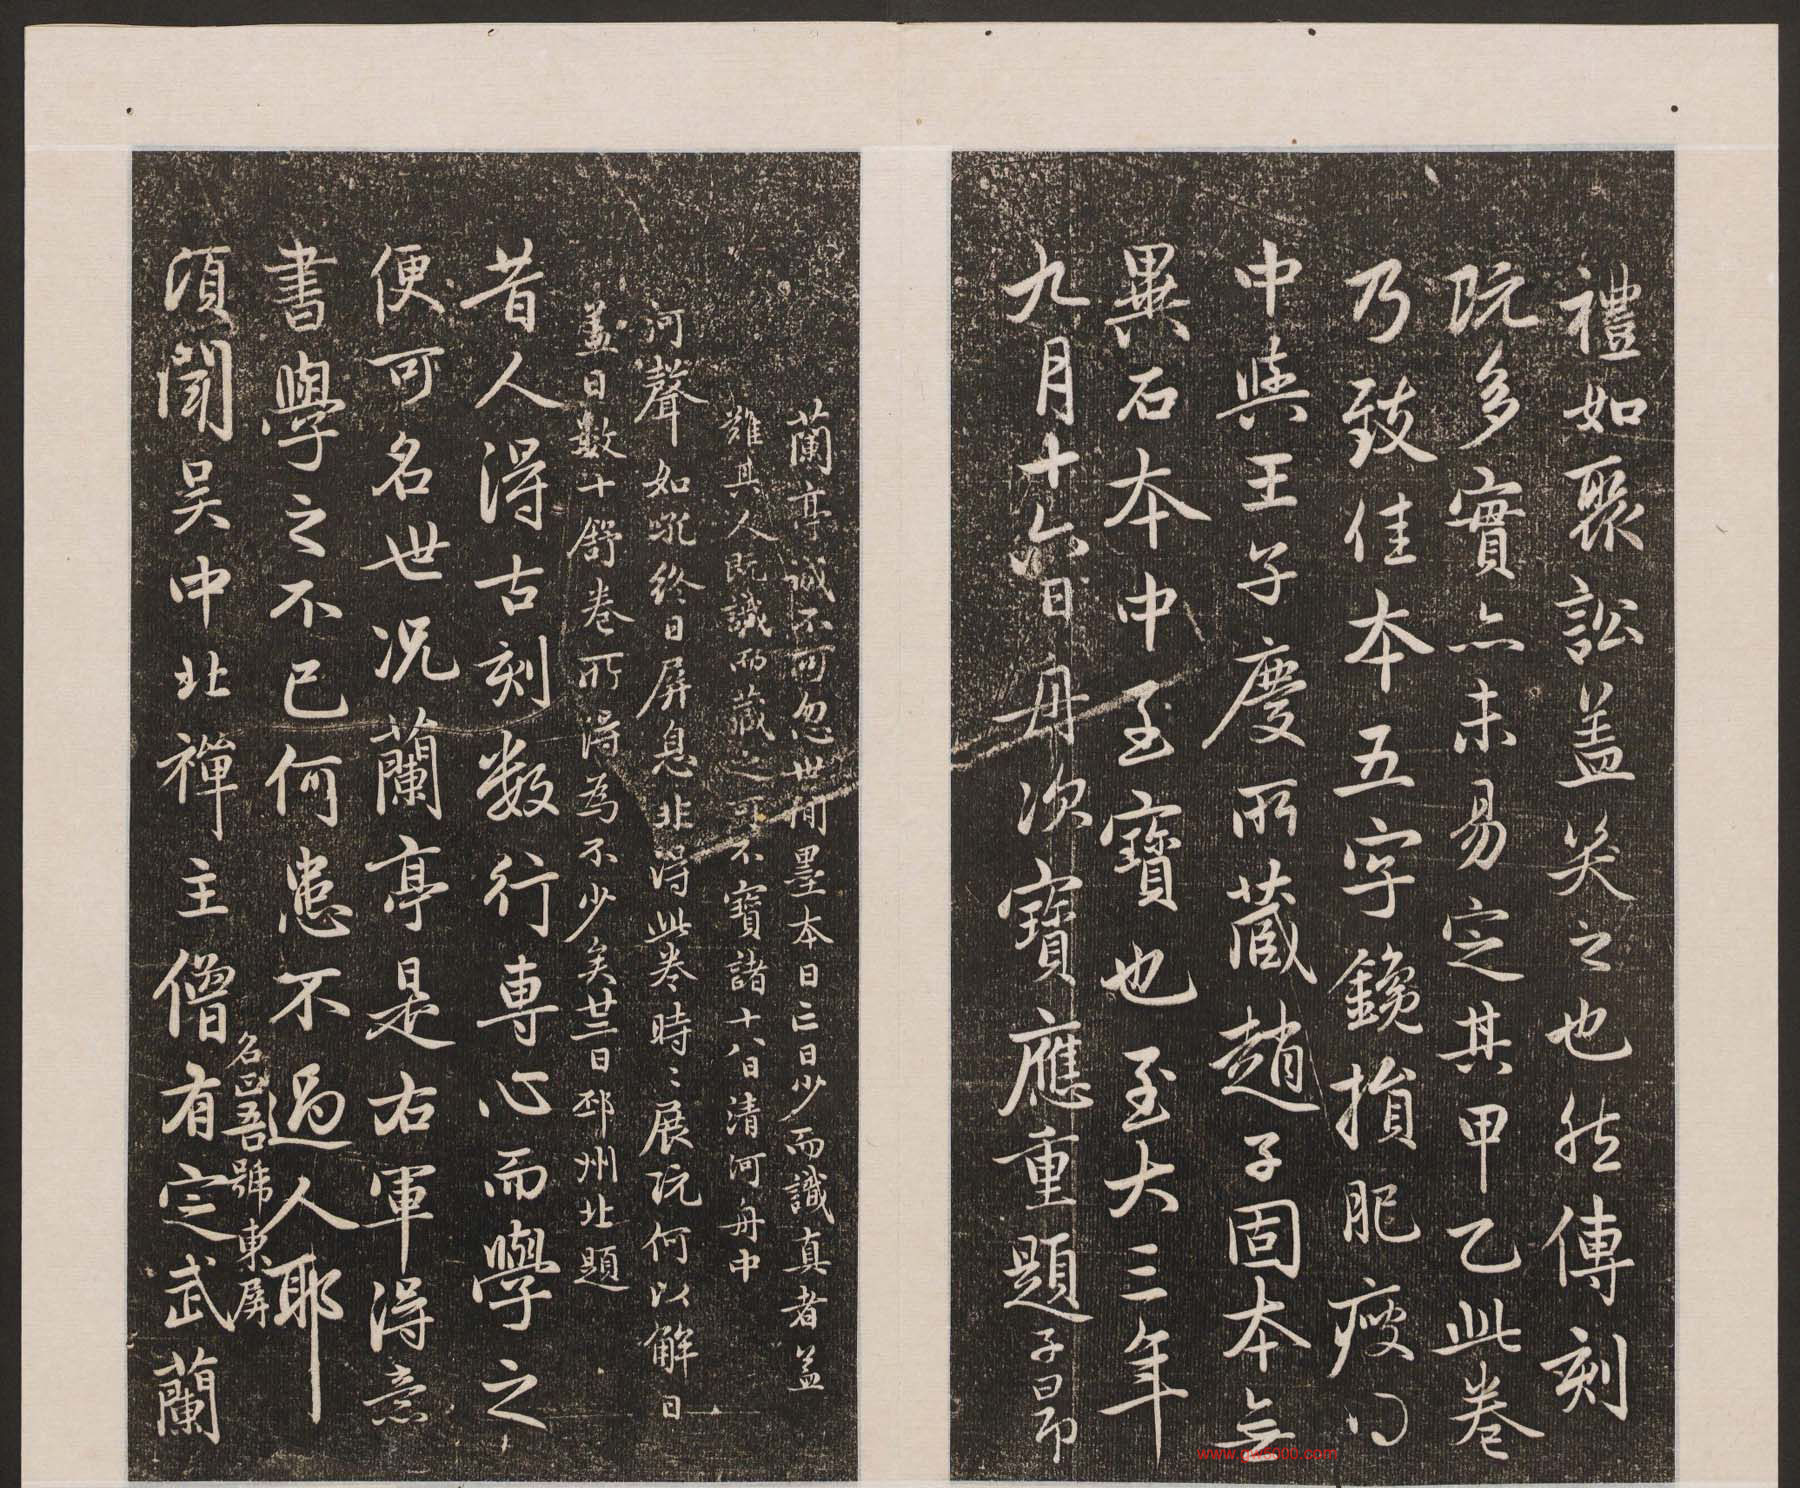 禮如聚訟盖笑之也然傳刻
既多實亦未易定其甲乙此卷
乃致佳本五字鑱損肥瘦得
中與王子慶所藏趙子固本無
異石本中至寶也至大三年
九月十六日舟次寶應重題子昂
蘭亭誠不可忽世間墨本日亡日少而識真者盖
難其人既識而藏之可不寶諸十八日清河舟中
河聲如吼終日屏息非得此卷時〻展玩何以解日
盖日數十舒卷所得為不少矣廿二日邳州北題
昔人得古刻数行專心而學之
便可名世况蘭亭是右軍得意
書學之不已何患不過人耶
須聞吳中北禪主僧有定武蘭
名正吾號東屏
www.g
000.com